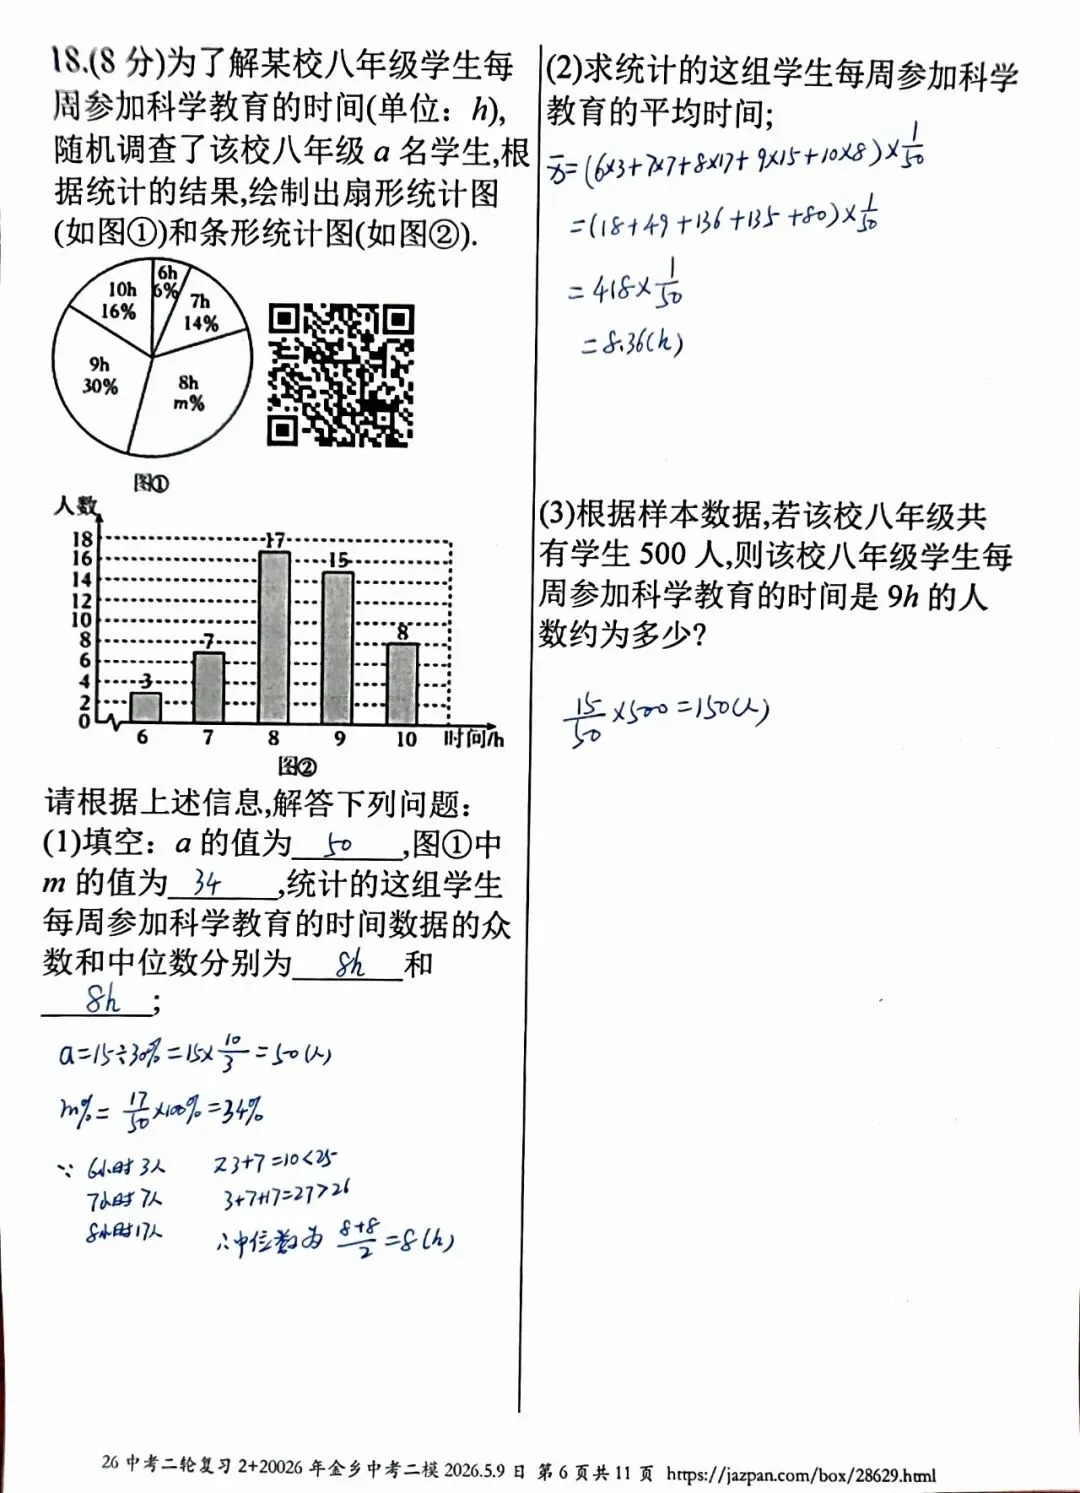 18.(8 分)为了解某校八年级学生每
周参加科学教育的时间(单位：h),
随机调查了该校八年级 a 名学生,根
据统计的结果,绘制出扇形统计图
(如图①)和条形统计图(如图②).
6h
6%
7h
14%
8h
m%
9h
30%
10h
16%
图①
人数
18
16
14
12
10
8
6
4
2
0
3
7
17
15
8
6 7 8 9 10 时间/h
图②
请根据上述信息,解答下列问题：
(1)填空：a 的值为 50 ,图①中
m 的值为 34 ,统计的这组学生
每周参加科学教育的时间数据的众
数和中位数分别为 8h 和
8h ;
a=15÷30%=15×10/3=50(人)
m%=17/50×100%=34%
∵ 6小时3人 又3+7=10<25
7小时7人 3+7+17=27>26
8小时17人 ∴中位数为 8+8/2=8(h)
(2)求统计的这组学生每周参加科学
教育的平均时间;
x̄=(6×3+7×7+8×17+9×15+10×8)×1/50
=(18+49+136+135+80)×1/50
=418×1/50
=8.36(h)
(3)根据样本数据,若该校八年级共
有学生 500 人,则该校八年级学生每
周参加科学教育的时间是 9h 的人
数约为多少?
15/50×500=150(人)
26 中考二轮复习 2+20026 年金乡中考二模 2026.5.9 日 第 6 页共 11 页 https://jazpan.com/box/28629.html